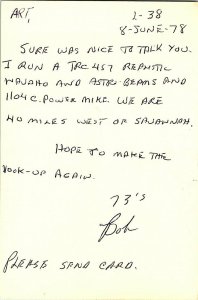 ART, 2-38
8-JUNE-78
SURE WAS NICE TO TALK YOU.
I RUN A TRC 457 REALISTIC
NAVAHO AND ASTRO-BEAMS AND
1104 C. POWER MIKE. WE ARE
40 MILES WEST OF SAVANNAH.
HOPE TO MAKE THE
HOOK-UP AGAIN.
73'S
Bob
PLEASE SEND CARD.